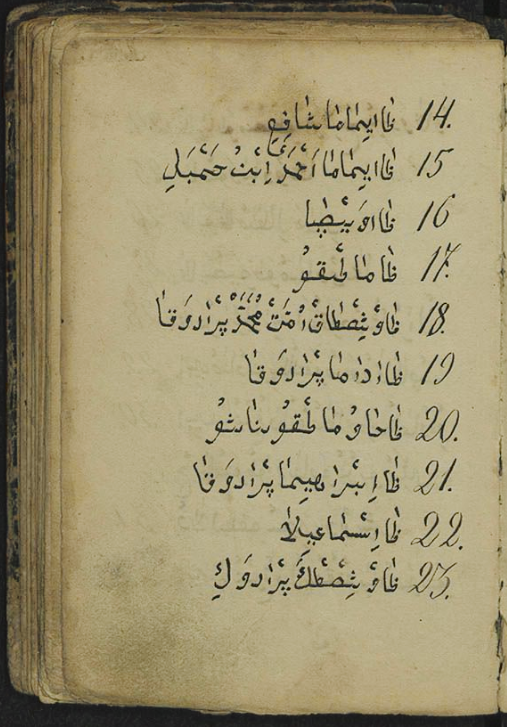 14. ظا ايماما شافعِ
15 ظا ايماما اَحْمَدَ اِبْنُ حَنْبَلِ
16 ظا
17. ظا ماطْقوُ
18. ظا وْشِصْطاقْ اُمَّتْ مُحَمَّدْ پْرَادوَقا
19 ظا ادَاما پْرَادوَقا
20. ظا حاوُ ماطْقوُ ناشوُ
21. ظا اِبْراهيما پْرَادوَقا
22. ظا اِسْماعيلا
23. ظا وْشِصْطْكِ پْرَادوَكِ